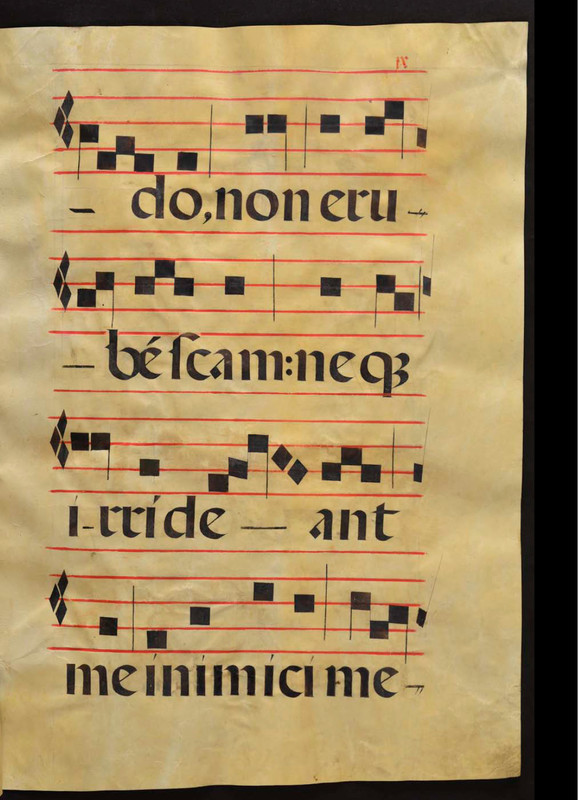 IX
– do, non eru-
– béſcam: neqꝫ
i-rride – ant
me inimici me-